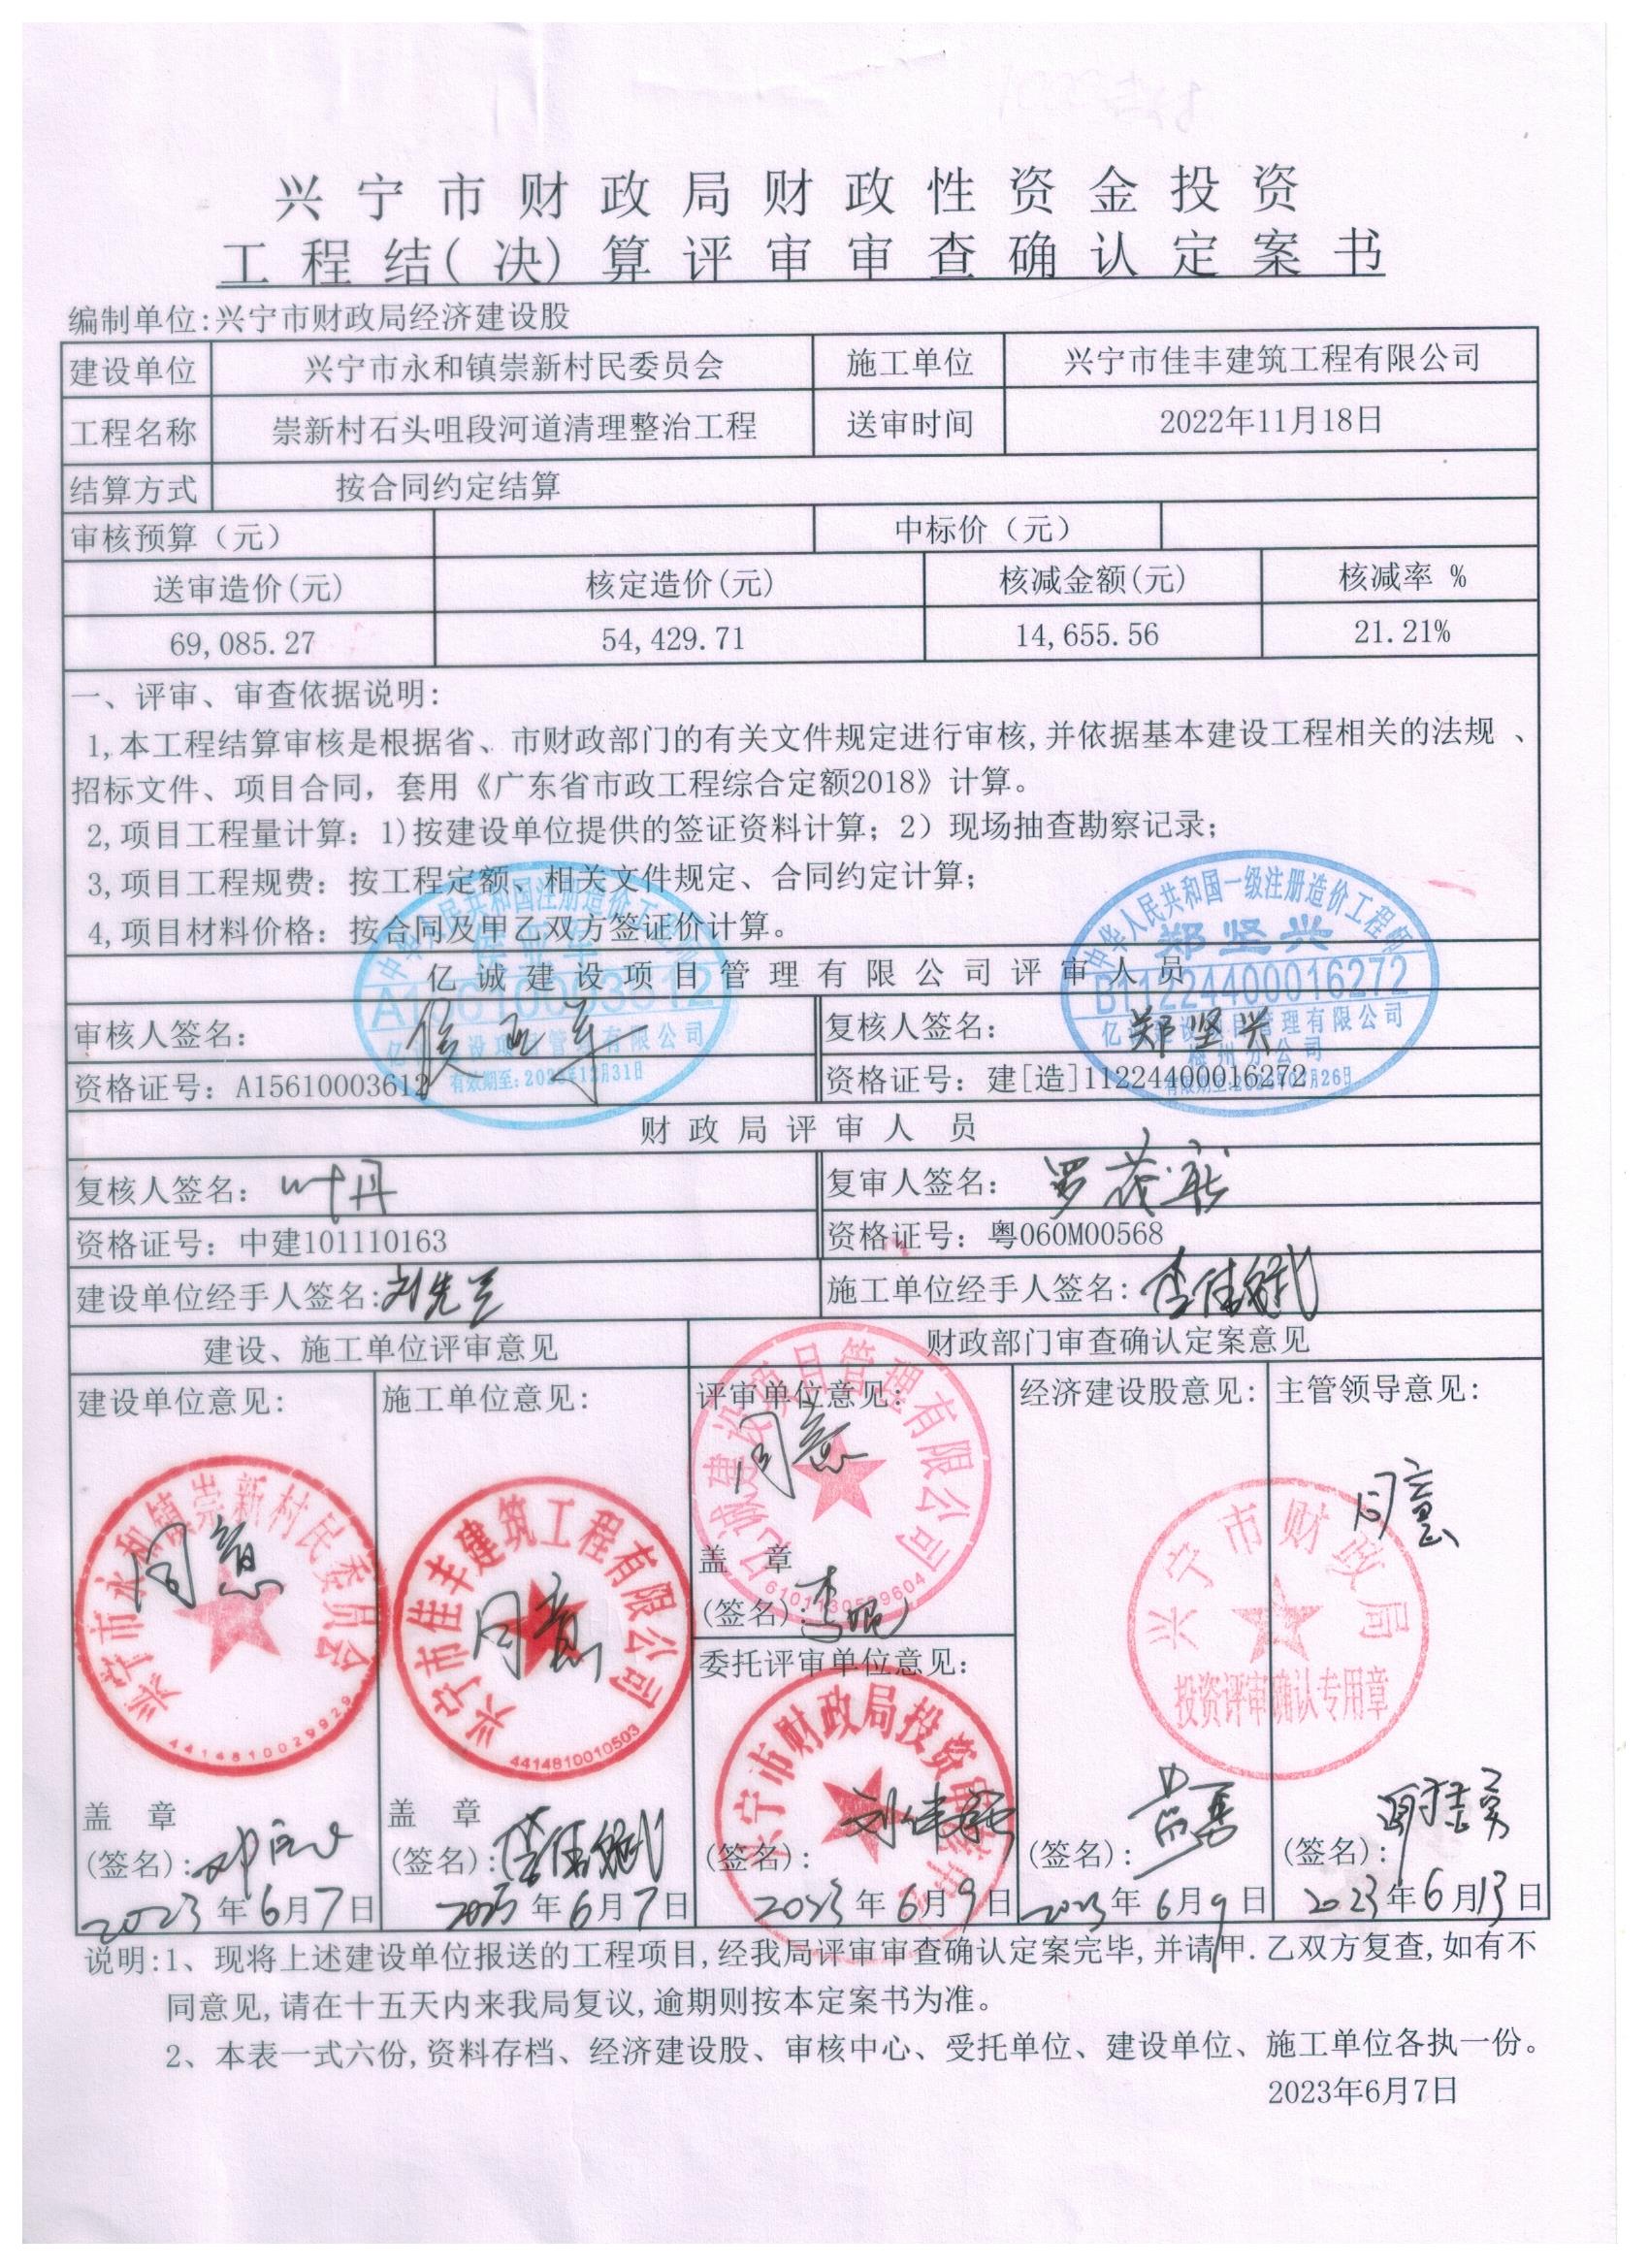 兴宁市财政局财政性资金投资
工程结(决)算评审审查确认定案书
编制单位:兴宁市财政局经济建设股
建设单位 兴宁市永和镇崇新村民委员会 施工单位 兴宁市佳丰建筑工程有限公司
工程名称 崇新村石头咀段河道清理整治工程 送审时间 2022年11月18日
结算方式 按合同约定结算
审核预算（元） 中标价（元）
送审造价(元) 核定造价(元) 核减金额(元) 核减率 %
69,085.27 54,429.71 14,655.56 21.21%
一、评审、审查依据说明:
1,本工程结算审核是根据省、市财政部门的有关文件规定进行审核,并依据基本建设工程相关的法规、
招标文件、项目合同，套用《广东省市政工程综合定额2018》计算。
2,项目工程量计算：1)按建设单位提供的签证资料计算；2）现场抽查勘察记录；
3,项目工程规费：按工程定额、相关文件规定、合同约定计算；
4,项目材料价格：按合同及甲乙双方签证价计算。
中华人民共和国注册造价工程师
A15610003612
亿诚建设项目管理有限公司
中华人民共和国一级注册造价工程师
郑坚兴
B11224400016272
亿诚建设项目管理有限公司
梅州分公司
亿诚建设项目管理有限公司评审人员
审核人签名： 侯亚军 复核人签名： 郑坚兴
资格证号：A15610003612 资格证号：建[造]11224400016272
财政局评审人员
复核人签名： 叶丹 复审人签名：
资格证号：中建101110163 资格证号：粤060M00568
建设单位经手人签名:刘先兰 施工单位经手人签名:
建设、施工单位评审意见 财政部门审查确认定案意见
建设单位意见: 施工单位意见: 评审单位意见: 经济建设股意见: 主管领导意见:
同意 同意 同意 同意
兴宁市永和镇崇新村民委员会
4414810029929
兴宁市佳丰建筑工程有限公司
4414810010503
亿诚建设项目管理有限公司
盖 章
(签名):
委托评审单位意见:
兴宁市财政局
投资评审确认专用章
盖 章 盖 章
(签名): (签名): (签名): (签名): (签名):
2023年6月7日 2023年6月7日 2023年6月9日 2023年6月9日 2023年6月13日
说明:1、现将上述建设单位报送的工程项目,经我局评审审查确认定案完毕,并请甲.乙双方复查,如有不
同意见,请在十五天内来我局复议,逾期则按本定案书为准。
2、本表一式六份,资料存档、经济建设股、审核中心、受托单位、建设单位、施工单位各执一份。
2023年6月7日